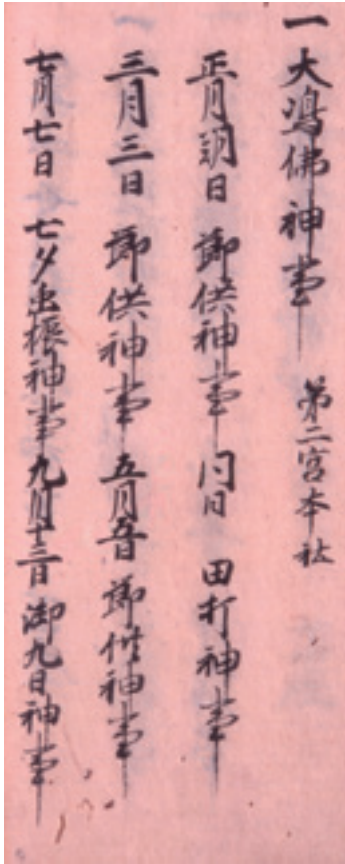 一大嶋佛神事 第二宮本社
正月朔日 御供神事 同日 田打神事
三月三日 御供神事 五月五日 御供神事
七月七日 七夕虫振神事 九月十三日 御九日神事